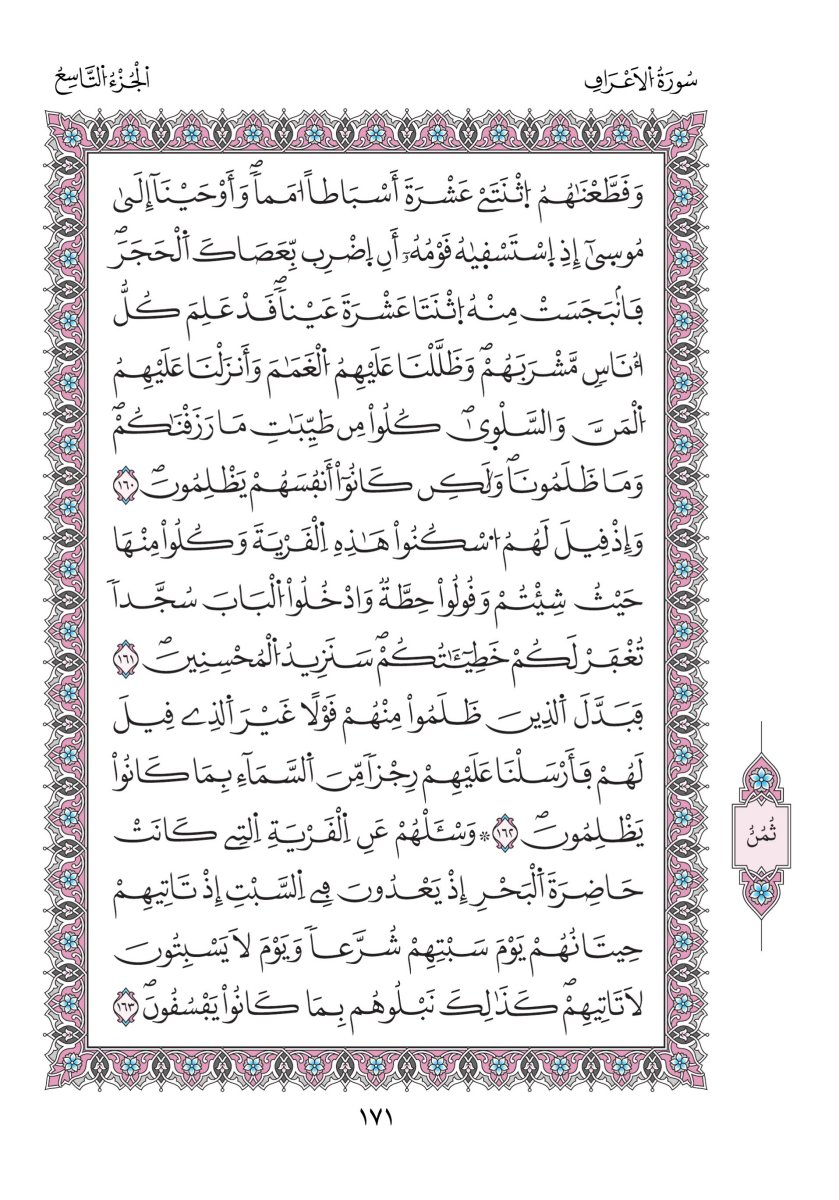 سُورَةُ اُ۬لَاعْرَافِ
اَ۬لْجُزْءُ اُ۬لتَّاسِعُ
وَقَطَّعْنَٰهُمُ اُ۪ثْنَتَےْ عَشْرَةَ أَسْبَاطاً اُمَماٗۖ وَأَوْحَيْنَآ إِلَىٰ
مُوس۪يٰٓ إِذِ اِ۪سْتَسْق۪يٰهُ قَوْمُهُۥٓ أَنِ اِ۪ضْرِب بِّعَصَاكَ اَ۬لْحَجَرَۖ
فَانۢبَجَسَتْ مِنْهُ اُ۪ثْنَتَا عَشْرَةَ عَيْناٗۖ قَدْ عَلِمَ كُلُّ
أُنَاسٖ مَّشْرَبَهُمْۖ وَظَلَّلْنَا عَلَيْهِمُ اُ۬لْغَمَٰمَ وَأَنزَلْنَا عَلَيْهِمُ
اُ۬لْمَنَّ وَالسَّلْو۪يٰۖ كُلُواْ مِن طَيِّبَٰتِ مَا رَزَقْنَٰكُمْۖ
وَمَا ظَلَمُونَاۖ وَلَٰكِن كَانُوٓاْ أَنفُسَهُمْ يَظْلِمُونَۖ ١٦٠
وَإِذْ قِيلَ لَهُمُ اُ۟سْكُنُواْ هَٰذِهِ اِ۬لْقَرْيَةَ وَكُلُواْ مِنْهَا
حَيْثُ شِئْتُمْ وَقُولُواْ حِطَّةٞ وَادْخُلُواْ اُ۬لْبَابَ سُجَّداٗ
تُغْفَرْ لَكُمْ خَطِيٓـَٰٔتُكُمْۖ سَنَزِيدُ اُ۬لْمُحْسِنِينَۖ ١٦١
فَبَدَّلَ اَ۬لذِينَ ظَلَمُواْ مِنْهُمْ قَوْلًا غَيْرَ اَ۬لذِے قِيلَ
لَهُمْ فَأَرْسَلْنَا عَلَيْهِمْ رِجْزاٗ مِّنَ اَ۬لسَّمَآءِ بِمَا كَانُواْ
يَظْلِمُونَۖ ١٦٢ ۞ وَسْـَٔلْهُمْ عَنِ اِ۬لْقَرْيَةِ اِ۬لتِے كَانَتْ
حَاضِرَةَ اَ۬لْبَحْرِ إِذْ يَعْدُونَ فِے اِ۬لسَّبْتِ إِذْ تَاتِيهِمْ
حِيتَانُهُمْ يَوْمَ سَبْتِهِمْ شُرَّعاٗ وَيَوْمَ لَا يَسْبِتُونَ
لَا تَاتِيهِمْۖ كَذَٰلِكَ نَبْلُوهُم بِمَا كَانُواْ يَفْسُقُونَۖ ١٦٣
ثُمُنُ
١٧١